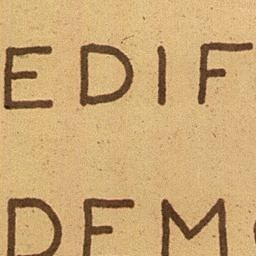 EDIF
DEM